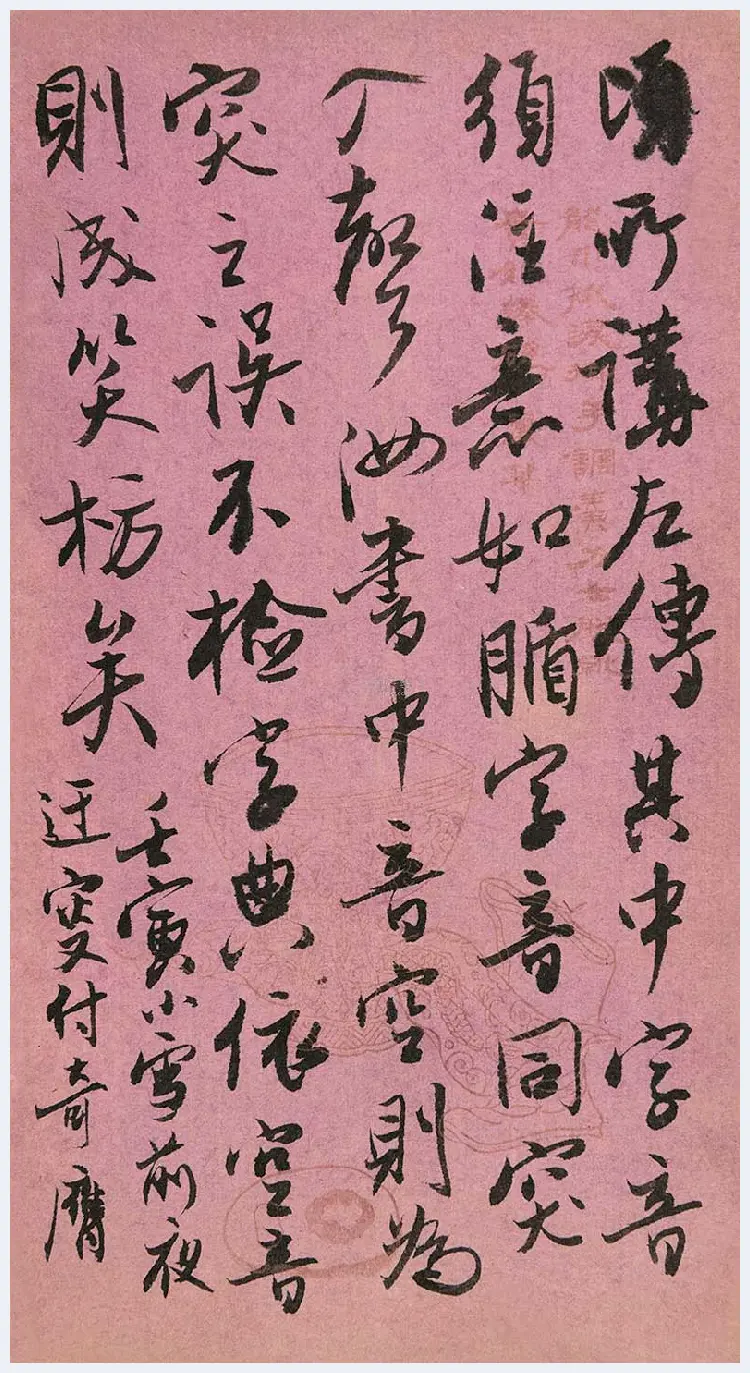 頃所講左傳其中字音
須注意如腯字音同突
入聲汝書中音空則為
突之誤不檢字典依空音
則成笑柄矣
壬寅小雪前夜
迂叟付奇膺